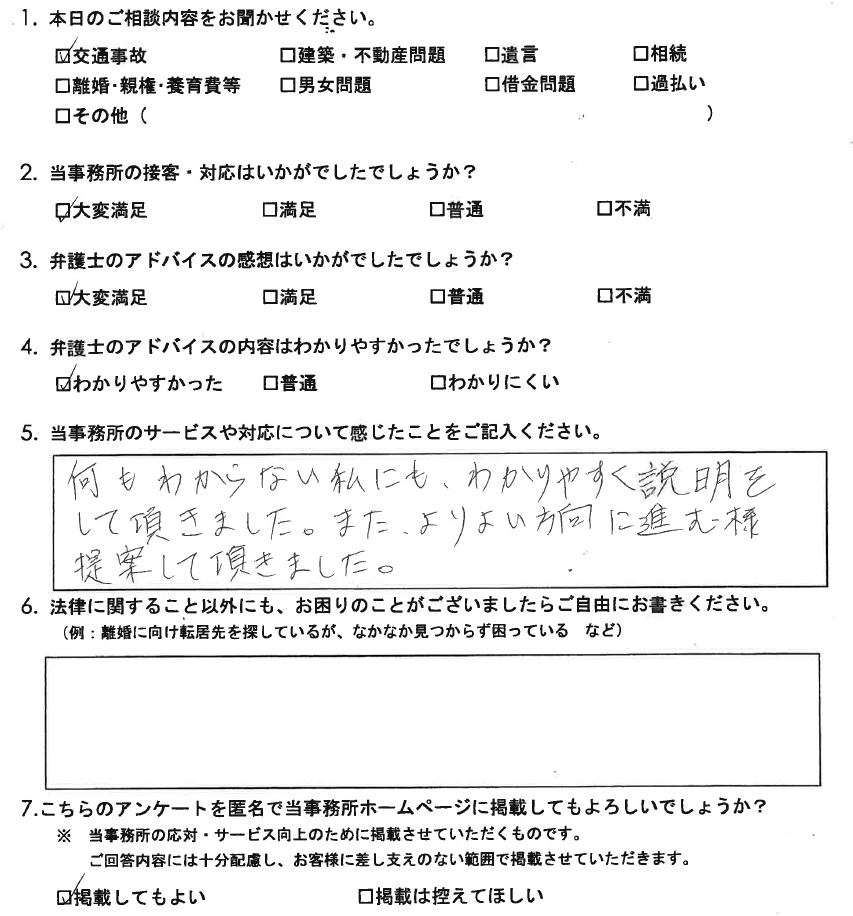 1. 本日のご相談内容をお聞かせください。
☑交通事故 □建築・不動産問題 □遺言 □相続
□離婚・親権・養育費等 □男女問題 □借金問題 □過払い
□その他（ ）
2. 当事務所の接客・対応はいかがでしたでしょうか？
☑大変満足 □満足 □普通 □不満
3. 弁護士のアドバイスの感想はいかがでしたでしょうか？
☑大変満足 □満足 □普通 □不満
4. 弁護士のアドバイスの内容はわかりやすかったでしょうか？
☑わかりやすかった □普通 □わかりにくい
5. 当事務所のサービスや対応について感じたことをご記入ください。
何もわからない私にも、わかりやすく説明を
して頂きました。また、よりよい方向に進む様
提案して頂きました。
6. 法律に関すること以外にも、お困りのことがございましたらご自由にお書きください。
（例：離婚に向け転居先を探しているが、なかなか見つからず困っている など）
7.こちらのアンケートを匿名で当事務所ホームページに掲載してもよろしいでしょうか？
※ 当事務所の応対・サービス向上のために掲載させていただくものです。
ご回答内容には十分配慮し、お客様に差し支えのない範囲で掲載させていただきます。
☑掲載してもよい □掲載は控えてほしい